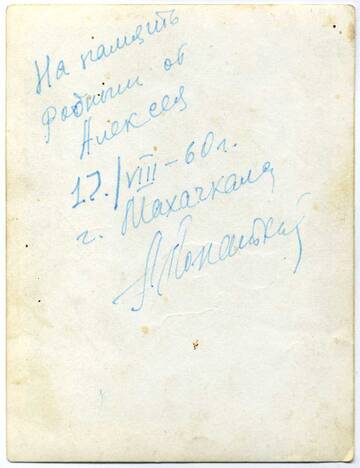 На память
родным от
Алексея
17/VIII-60г.
г. Махачкала